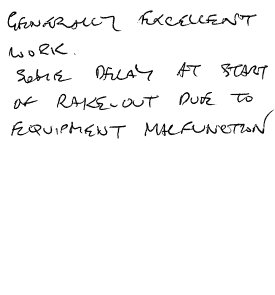 GENERALLY EXCELLENT
WORK.
SOME DELAY AT START
OF RAKE-OUT DUE TO
EQUIPMENT MALFUNCTION